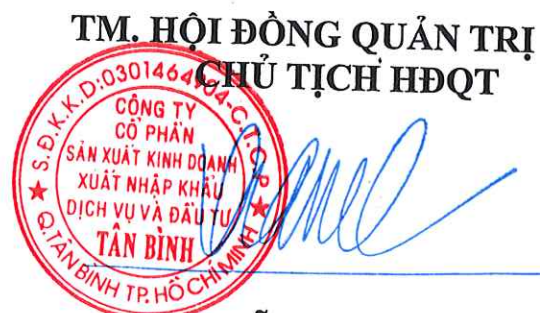 TM. HỘI ĐỒNG QUẢN TRỊ
CHỦ TỊCH HĐQT
CÔNG TY
CỔ PHẦN
SẢN XUẤT KINH DOANH
XUẤT NHẬP KHẨU
DỊCH VỤ VÀ ĐẦU TƯ
TÂN BÌNH
Q.TÂN BÌNH TP. HỒ CHÍ MINH